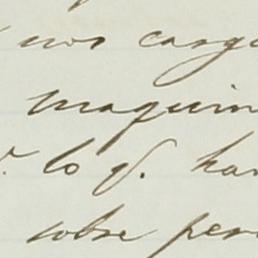 nos carg
maquin
lo q. ha
sobre per